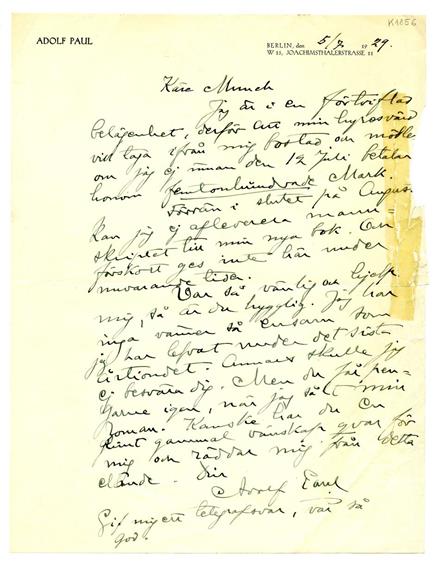 K1856
ADOLF PAUL
BERLIN, den 5/7. 1929.
W 15, JOACHIMSTHALERSTRASSE 11
Käre Munch
Jag är i en förtviflad
belägenhet, derför att min hyresvärd
vill taga ifrån mig bostad och möbler
om jag ej innan den 12 Juli betalar
honom femtonhundrade Mark.
Förrän i slutet på Augus-
Kan jag ej aflevererera manu-
skriptet till min nya bok. Och
förskott ges inte här under
nuvarande tider.
Var så vänlig och hjelp
mig, så är du hygglig. Jag har
inga vänner så ensam som
jag har lefvat under det sista
årtiondet. Annars skulle jag
ej besvära dig. Men du får pen-
garne igen, när jag sålt min
roman. Kanske har du en
gammal vänskap qvar för
mig och räddar mig från detta
elände. Din
Adolf Paul
Gif mig ett telegrafsvar, var så
god.